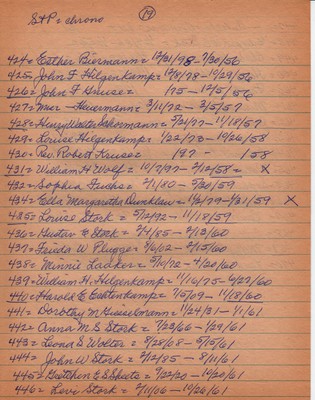 StP = chrono (19)
424 = Esther Biermann = 12/31/98 - 7/30/56
425 = John F Hilgenkamp = 12/8/78 - 10/29/56
426 = John F Kruse = /75 - 12/5/56
427 = Mrs - Heuermann = 3/11/72 - 3/5/57
428 = Henry Walter Ackermann = 7/24/97 - 11/18/57
429 = Louise Hilgenkamp = 1/22/73 - 10/26/58
430 = Rev. Robert Kruse = 197 - /58
431 = William H Wolf = 10/7/97 - 2/12/58 = X
432 = Sophia Fuchs = 2/1/80 - 5/20/59
434 = Ella Margaretha Dunklau = 1/6/79 - 1/21/59 X
435 = Louise Stork = 5/12/92 - 11/18/59
436 = Gustav E Stork = 2/4/85 - 2/13/60
437 = Frieda W Plugge = 3/6/02 - 2/15/60
438 = Minnie Laaker = 5/10/72 - 4/20/60
439 = William H. Hilgenkamp = 1/16/75 - 6/27/60
440 = Harold E Echtenkamp = 7/5/09 - 11/18/60
441 = Dorothy M Gusselmann = 11/24/31 - 1/1/61
442 = Anna M S Stork = 7/23/66 - 1/29/61
443 = Leona S Wolter = 8/28/08 - 5/15/61
444 = John W Stork = 2/2/85 - 8/11/61
445 = Gretchen E S Sheets = 7/22/20 - 10/20/61
446 = Levi Stork = 2/11/06 - 10/26/61